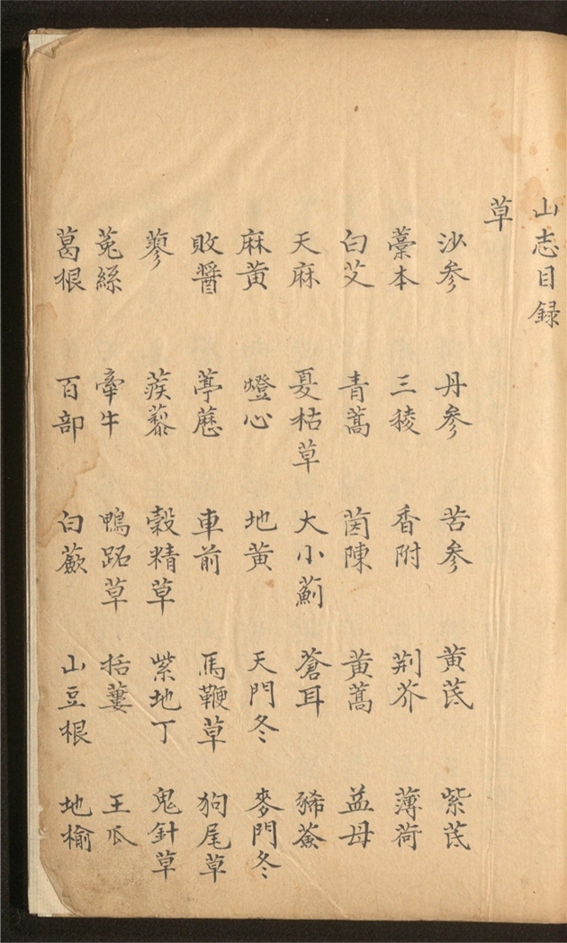 山志目録
草
沙参 丹参 苦参 黄芪 紫芪
藁本 三稜 香附 荆芥 薄荷
白艾 青蒿 茵陳 黄蒿 益母
天麻 夏枯草 大小薊 蒼耳 豨薟
麻黄 燈心 地黄 天門冬 麥門冬
敗醬 葶藶 車前 馬鞭草 狗尾草
蓼 蒺藜 穀精草 紫地丁 鬼針草
菟絲 牽牛 鴨跖草 括蔞 王瓜
葛根 百部 白蘞 山豆根 地榆